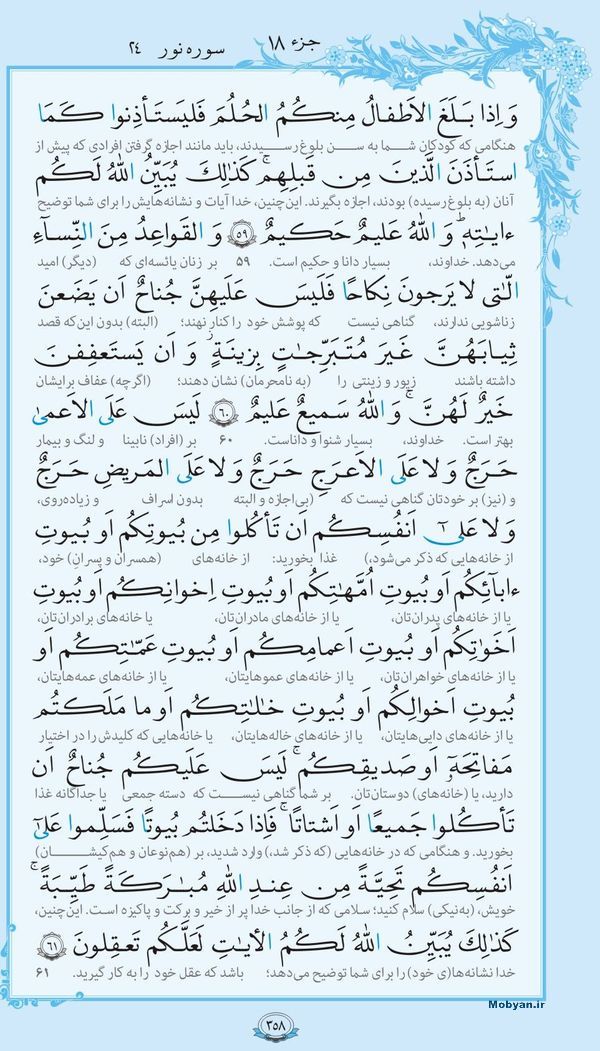 جزء ۱۸ سوره نور ۲۴
وَ اِذا بَلَغَ الاَطفالُ مِنكُمُ الحُلُمَ فَليَستَأذِنوا كَمَا
هنگامی که کودکان شما به سن بلوغ رسیدند، باید مانند اجازه گرفتن افرادی که پیش از
استَأذَنَ الَّذينَ مِن قَبلِهِم ۚ كَذٰلِكَ يُبَيِّنُ اللهُ لَكُم
آنان (به بلوغ رسیده) بودند، اجازه بگیرند. این‌چنین، خدا آیات و نشانه‌هایش را برای شما توضیح
ءايٰتِهِ ۗ وَ اللهُ عَليمٌ حَكيمٌ ۵۹ وَ القَواعِدُ مِنَ النِّساءِ
می‌دهد. خداوند، بسیار دانا و حکیم است. ۵۹ بر زنان یائسه‌ای که (دیگر) امید
الّٰتی لا يَرجونَ نِكاحًا فَلَيسَ عَلَيهِنَّ جُناحٌ اَن يَضَعنَ
زناشویی ندارند، گناهی نیست که پوشش خود را کنار نهند؛ (البته) بدون این‌که قصد
ثِيابَهُنَّ غَيرَ مُتَبَرِّجٰتٍ بِزينَةٍ ۖ وَ اَن يَستَعفِفنَ
داشته باشند زیور و زینتی را (به نامحرمان) نشان دهند؛ (اگرچه) عفاف برایشان
خَيرٌ لَهُنَّ ۗ وَ اللهُ سَميعٌ عَليمٌ ۶۰ لَيسَ عَلَى الاَعمىٰ
بهتر است. خداوند، بسیار شنوا و داناست. ۶۰ بر (افراد) نابینا و لنگ و بیمار
حَرَجٌ وَ لا عَلَى الاَعرَجِ حَرَجٌ وَ لا عَلَى المَريضِ حَرَجٌ
و (نیز) بر خودتان گناهی نیست که (بی‌اجازه و البته بدون اسراف و زیاده‌روی،
وَ لا عَلىٰٓ اَنفُسِكُم اَن تَأكُلوا مِن بُيوتِكُم اَو بُيوتِ
از خانه‌هایی که ذکر می‌شود،) غذا بخورید: از خانه‌های (همسران و پسران) خود،
ءابآئِكُم اَو بُيوتِ اُمَّهٰتِكُم اَو بُيوتِ اِخوانِكُم اَو بُيوتِ
یا از خانه‌های پدران‌تان، یا از خانه‌های مادران‌تان، یا خانه‌های برادران‌تان،
اَخَوٰتِكُم اَو بُيوتِ اَعمامِكُم اَو بُيوتِ عَمّٰتِكُم اَو
یا از خانه‌های خواهران‌تان، یا از خانه‌های عموهایتان، یا از خانه‌های عمه‌هایتان،
بُيوتِ اَخوالِكُم اَو بُيوتِ خٰلٰتِكُم اَو ما مَلَكتُم
یا از خانه‌های دایی‌هایتان، یا از خانه‌های خاله‌هایتان، یا خانه‌هایی که کلیدش را در اختیار
مَفاتِحَهٗٓ اَو صَديقِكُم ۚ لَيسَ عَلَيكُم جُناحٌ اَن
دارید، یا (خانه‌های) دوستان‌تان. بر شما گناهی نیست که دسته جمعی یا جداگانه غذا
تَأكُلوا جَميعًا اَو اَشتاتًا ۚ فَاِذا دَخَلتُم بُيوتًا فَسَلِّموا عَلىٰٓ
بخورید. و هنگامی که در خانه‌هایی (که ذکر شد،) وارد شدید، بر (هم‌نوعان و هم‌کیشان)
اَنفُسِكُم تَحِيَّةً مِن عِندِ اللهِ مُبٰرَكَةً طَيِّبَةً ۚ
خویش، (به‌نیکی) سلام کنید؛ سلامی که از جانب خدا پر از خیر و برکت و پاکیزه است. این‌چنین،
كَذٰلِكَ يُبَيِّنُ اللهُ لَكُمُ الأٰيٰتِ لَعَلَّكُم تَعقِلونَ ۶۱
خدا نشانه‌ها(ی خود) را برای شما توضیح می‌دهد؛ باشد که عقل خود را به کار گیرید. ۶۱
Mobyan.ir
۳۵۸